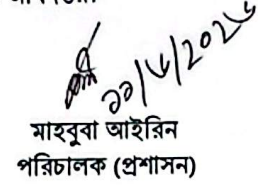 ১১/৬/২০২৬
মাহবুবা আইরিন
পরিচালক (প্রশাসন)